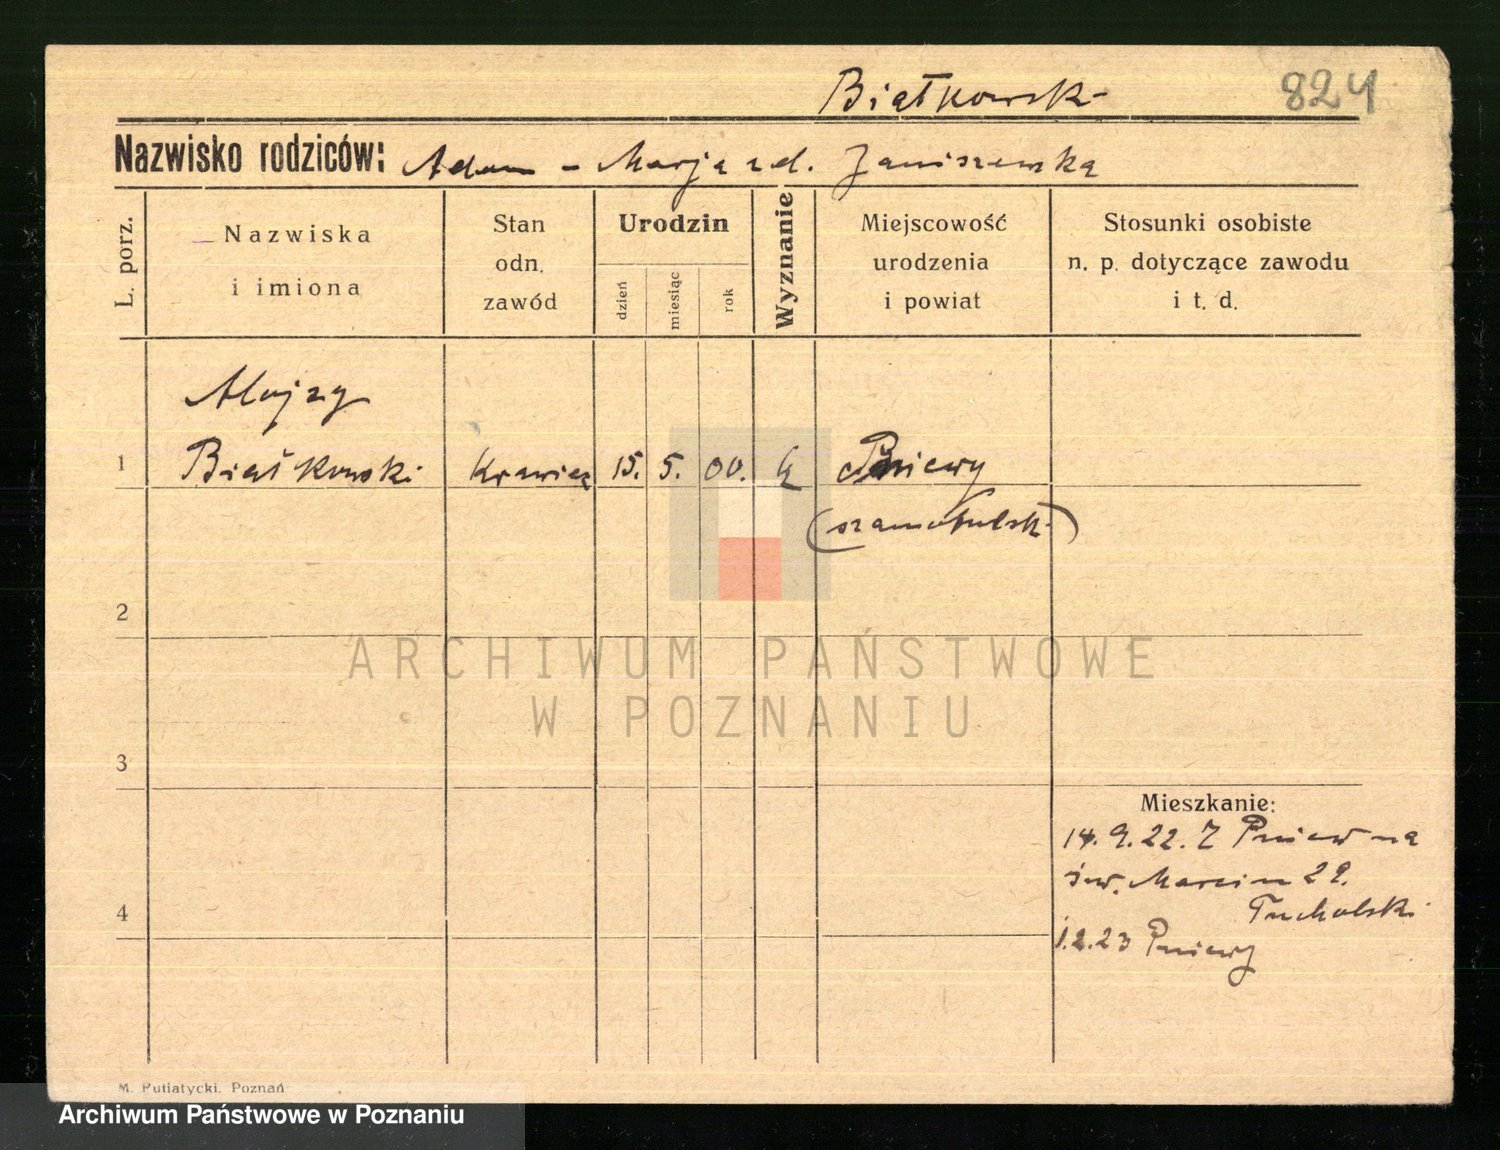 Białkowski
824
Nazwisko rodziców: Adam - Marja z d. Janiszewska
L. porz.
Nazwiska
i imiona
Stan
odn.
zawód
Urodzin
dzień
miesiąc
rok
Wyznanie
Miejscowość
urodzenia
i powiat
Stosunki osobiste
n. p. dotyczące zawodu
i t. d.
Alojzy
1 Białkowski Krawiec 15. 5. 00. k Pniewy
(szamotulski)
2
3
Mieszkanie:
14. 9. 22. Z Pniew na
św. Marcin 29.
Tucholski
4
1.2.23 Pniewy
M. Putiatycki. Poznań
ARCHIWUM PAŃSTWOWE
W POZNANIU
Archiwum Państwowe w Poznaniu